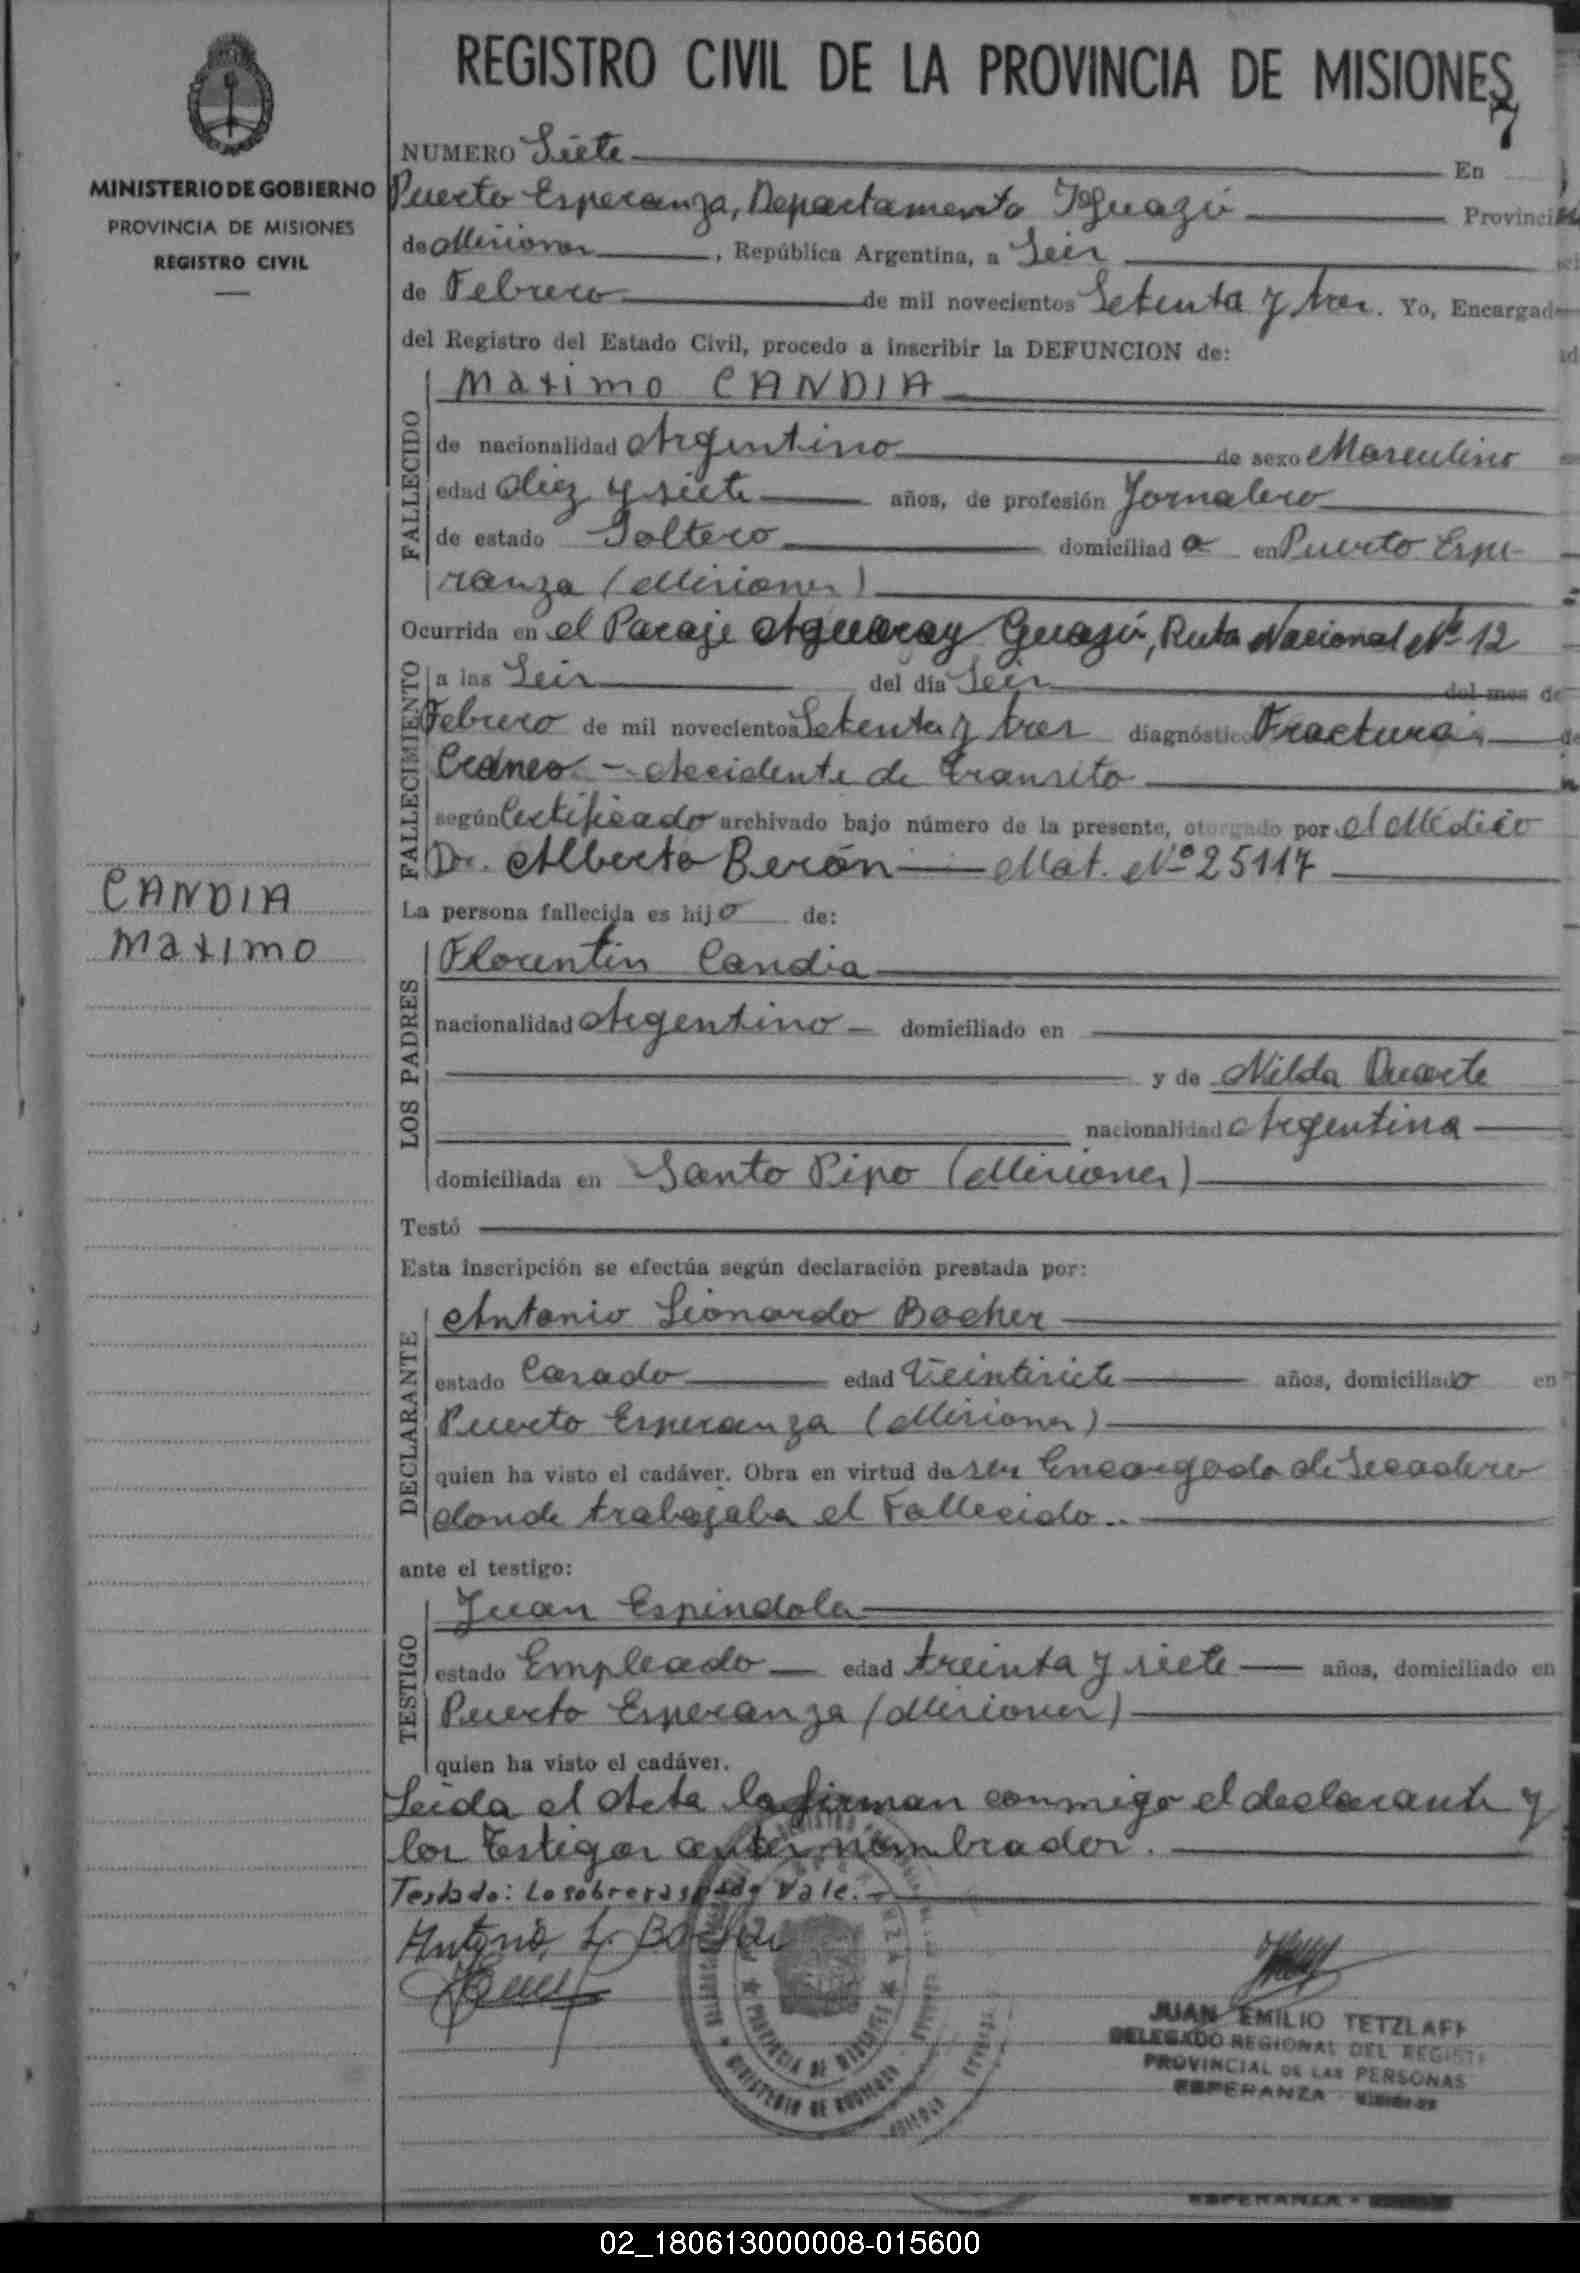 REGISTRO CIVIL DE LA PROVINCIA DE MISIONES
7
MINISTERIO DE GOBIERNO
PROVINCIA DE MISIONES
REGISTRO CIVIL
NUMERO Siete En
Puerto Esperanza, Departamento Iguazú Provincia
de Misiones, República Argentina, a Seis
de Febrero de mil novecientos Setenta y tres. Yo, Encargad
del Registro del Estado Civil, procedo a inscribir la DEFUNCION de:
FALLECIDO
Maximo CANDIA
de nacionalidad Argentino de sexo Masculino
edad diez y siete años, de profesión Jornalero
de estado Soltero domiciliado en Puerto Espe-
ranza (Misiones)
Ocurrida en el Paraje Aguaray Guazú, Ruta Nacional Nº 12
FALLECIMIENTO
a las Seis del día Seis del mes de
Febrero de mil novecientos Setenta y tres diagnóstico Fractura de
Craneo - Accidente de transito
según Certificado archivado bajo número de la presente, otorgado por el Médico
Dr. Alberto Berón Mat. Nº 25117
CANDIA
Maximo
La persona fallecida es hijo de:
LOS PADRES
Florentin Candia
nacionalidad Argentino domiciliado en
y de Nilda Duarte
nacionalidad Argentina
domiciliada en Santo Pipo (Misiones)
Testó
Esta inscripción se efectúa según declaración prestada por:
DECLARANTE
Antonio Leonardo Bocher
estado Casado edad Veintisiete años, domiciliado en
Puerto Esperanza (Misiones)
quien ha visto el cadáver. Obra en virtud de ser Encargado de Secadero
donde trabajaba el Fallecido..
ante el testigo:
TESTIGO
Juan Espindola
estado Empleado edad treinta y siete años, domiciliado en
Puerto Esperanza (Misiones)
quien ha visto el cadáver.
Leida el Acta la firman conmigo el declarante y
los testigos antes nombrados.
Testado: Lo sobreraspado Vale.
Antonio L. Bocher
PROVINCIA DE MISIONES
MINISTERIO DE GOBIERNO
JUAN EMILIO TETZLAFF
DELEGADO REGIONAL DEL REGISTR
PROVINCIAL DE LAS PERSONAS
ESPERANZA - MISIONES
ESPERANZA -
02_180613000008-015600